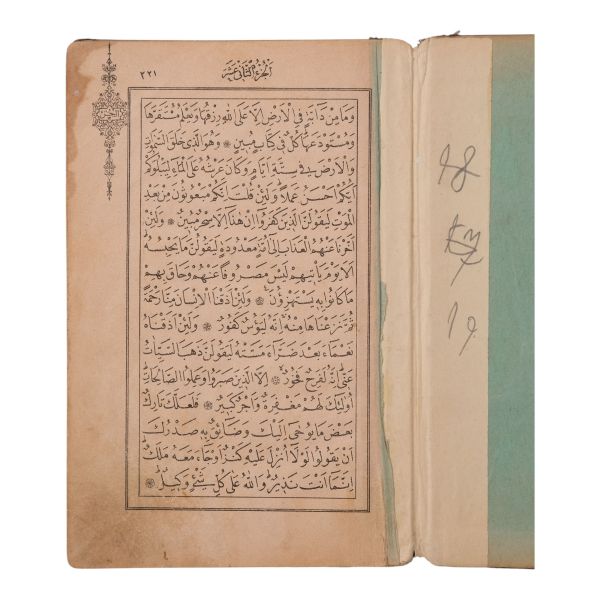 الجزء الثانی عشر
٢٢١
وَمَا مِنْ دَآبَّةٍ فِي الْاَرْضِ اِلَّا عَلَى اللّٰهِ رِزْقُهَا وَيَعْلَمُ مُسْتَقَرَّهَا
وَمُسْتَوْدَعَهَا كُلٌّ فِي كِتَابٍ مُبِينٍ ❁ وَهُوَ الَّذِي خَلَقَ السَّمٰوَاتِ
وَالْاَرْضَ فِي سِتَّةِ اَيَّامٍ وَكَانَ عَرْشُهُ عَلَى الْمَآءِ لِيَبْلُوَكُمْ
اَيُّكُمْ اَحْسَنُ عَمَلًا وَلَئِنْ قُلْتَ اِنَّكُمْ مَبْعُوثُونَ مِنْ بَعْدِ
الْمَوْتِ لَيَقُولَنَّ الَّذِينَ كَفَرُوا اِنْ هٰذَا اِلَّا سِحْرٌ مُبِينٌ ❁ وَلَئِنْ
اَخَّرْنَا عَنْهُمُ الْعَذَابَ اِلٰى اُمَّةٍ مَعْدُودَةٍ لَيَقُولُنَّ مَا يَحْبِسُهُ
اَلَا يَوْمَ يَأْتِيهِمْ لَيْسَ مَصْرُوفًا عَنْهُمْ وَحَاقَ بِهِمْ
مَا كَانُوا بِهِ يَسْتَهْزِؤُنَ ❁ وَلَئِنْ اَذَقْنَا الْاِنْسَانَ مِنَّا رَحْمَةً
ثُمَّ نَزَعْنَاهَا مِنْهُ اِنَّهُ لَيَؤُسٌ كَفُورٌ ❁ وَلَئِنْ اَذَقْنَاهُ
نَعْمَآءَ بَعْدَ ضَرَّآءَ مَسَّتْهُ لَيَقُولَنَّ ذَهَبَ السَّيِّئَاتُ
عَنِّي اِنَّهُ لَفَرِحٌ فَخُورٌ ❁ اِلَّا الَّذِينَ صَبَرُوا وَعَمِلُوا الصَّالِحَاتِ
اُولٰئِكَ لَهُمْ مَغْفِرَةٌ وَاَجْرٌ كَبِيرٌ ❁ فَلَعَلَّكَ تَارِكٌ
بَعْضَ مَا يُوحٰى اِلَيْكَ وَضَآئِقٌ بِهِ صَدْرُكَ
اَنْ يَقُولُوا لَوْلَا اُنْزِلَ عَلَيْهِ كَنْزٌ اَوْ جَآءَ مَعَهُ مَلَكٌ
اِنَّمَا اَنْتَ نَذِيرٌ وَاللّٰهُ عَلٰى كُلِّ شَيْءٍ وَكِيلٌ ❁
18
19